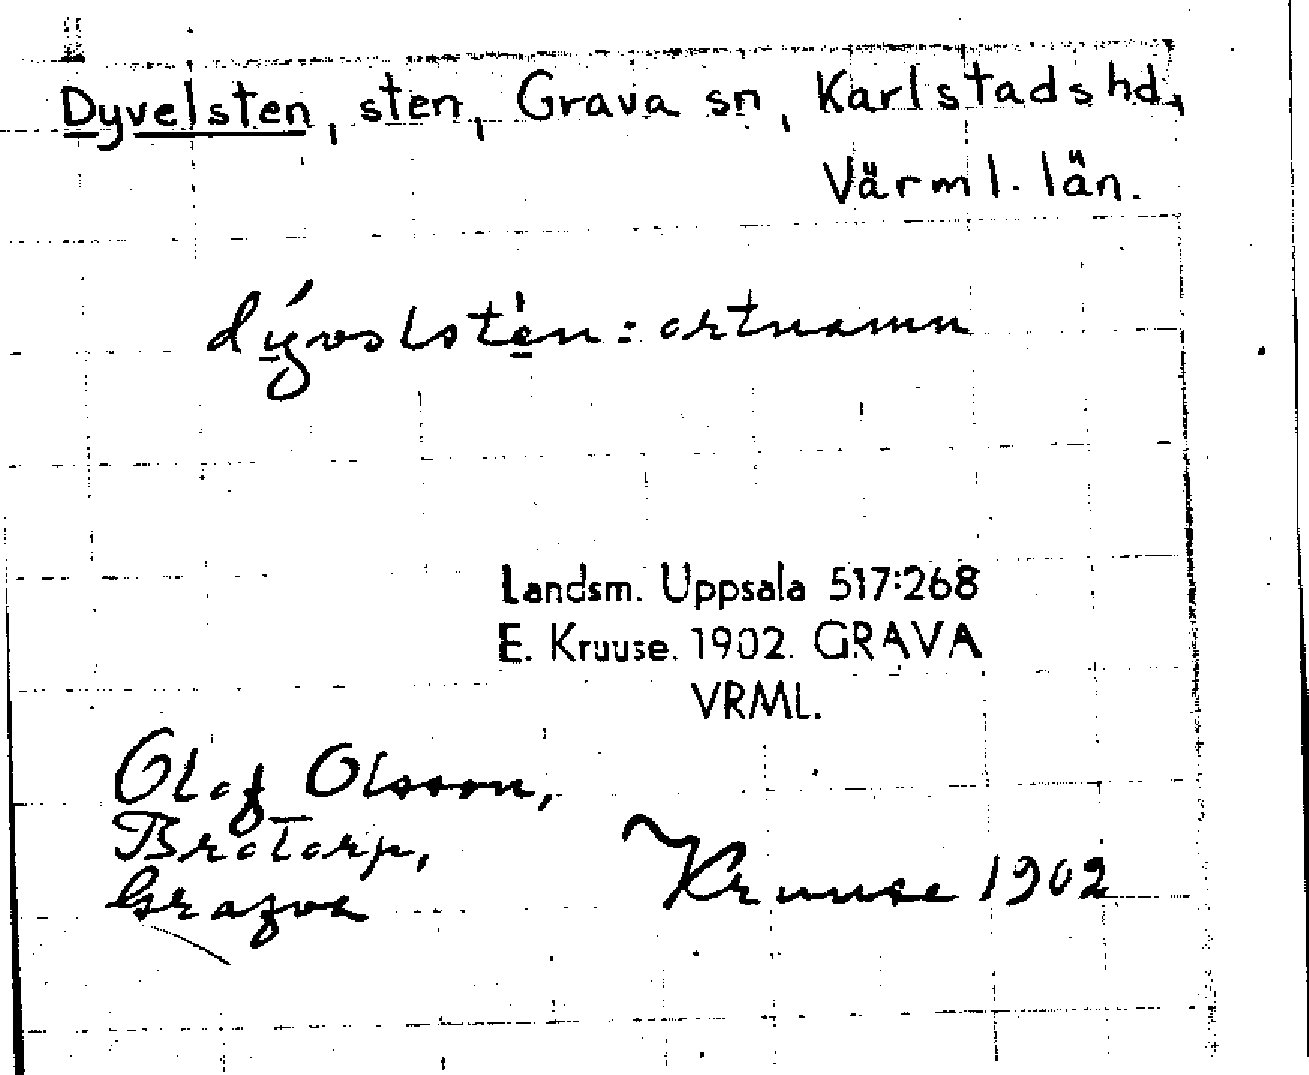 Dyvelsten, sten, Grava sn, Karlstads hd,
Värml. län.
dývəlstèn: ortnamn
Landsm. Uppsala 517:268
E. Kruuse. 1902. GRAVA
VRML.
Olof Olsson,
Brotorp,
Grafva
Kruuse 1902